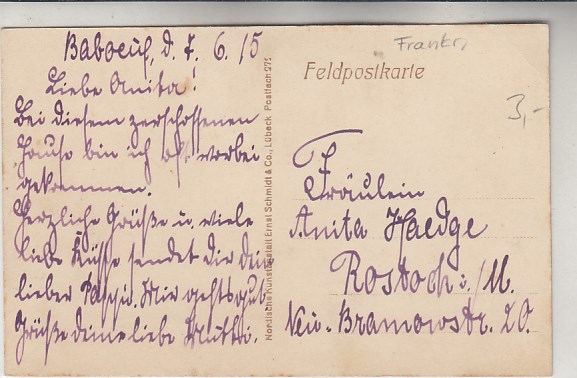 Baboeuf, d. 7. 6. 15
Liebe Anita!
Bei diesem zerschossenen
Hause bin ich oft vorbei
gekommen.
Herzliche Grüße u. viele
liebe Küsse sendet Dir dein
lieber Papchi. Mir gehts gut
Grüße deine liebe Mutti.
Nordische Kunstanstalt Ernst Schmidt & Co., Lübeck Postfach 271
Frankr,
Feldpostkarte
3,-
Fräulein
Anita Haedge
Rostock i./M.
Neu-Bramowstr. 20.